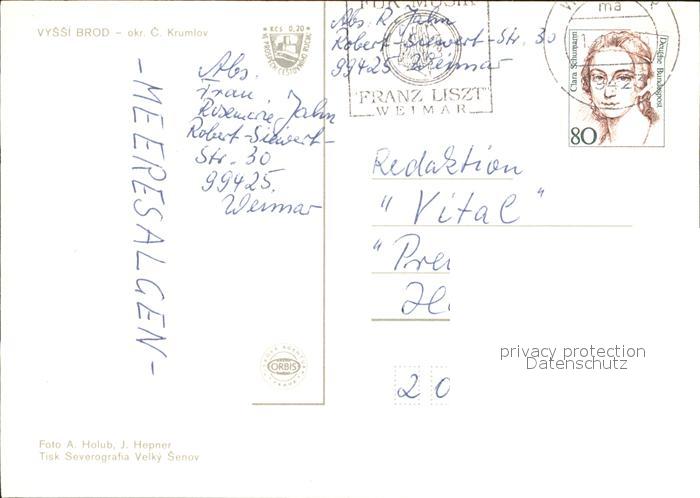 VYŠŠÍ BROD – okr. Č. Krumlov
KČS 0,20
Abs.
Frau
Rosemarie Jahn
Robert-Siewert-
Str. 30
99425
Weimar
-MEERESALGEN-
ORBIS
Foto A. Holub, J. Hepner
Tisk Severografia Velký Šenov
Abs: R. Jahn
Robert-Siewert-Str. 30
99425 Weimar
FÜR MUSIK
"FRANZ LISZT"
WEIMAR
Clara Schumann
Deutsche Bundespost
80
Redaktion
"Vital"
20
privacy protection
Datenschutz